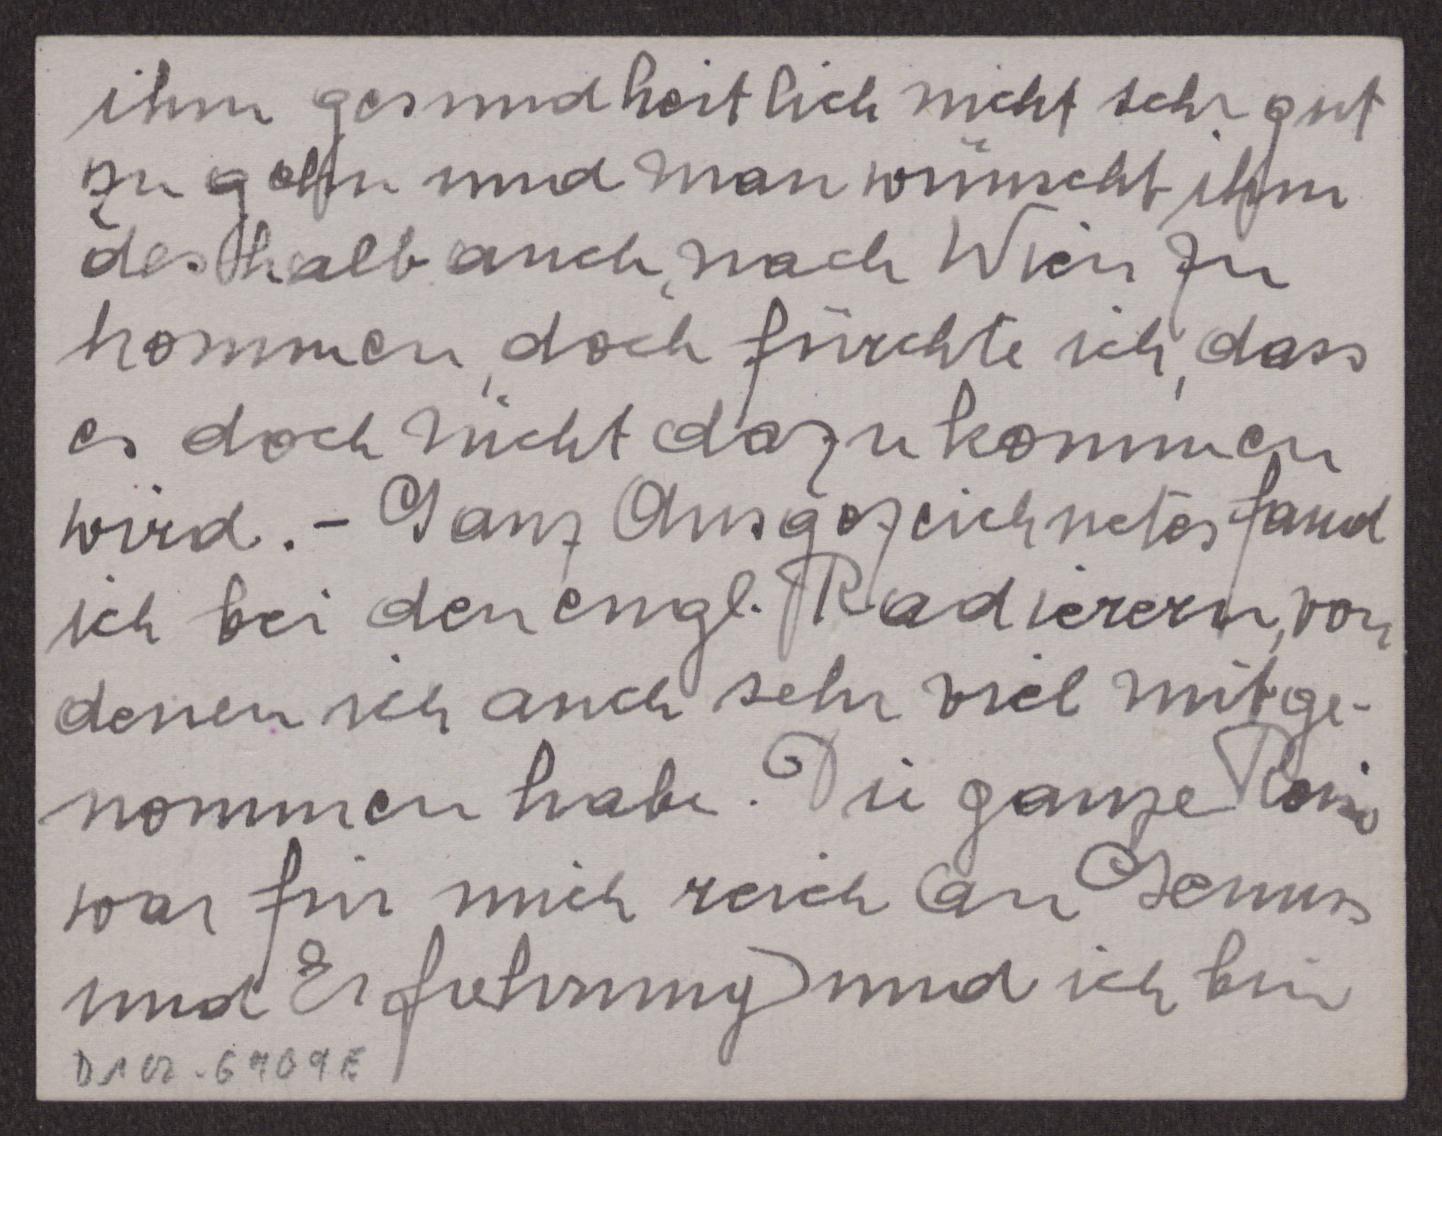 ihm gesundheitlich nicht sehr gut
zu gehn und man wünscht ihm
deshalb auch, nach Wien zu
kommen, doch fürchte ich, dass
es doch nicht dazu kommen
wird. - Ganz Ausgezeichnetes fand
ich bei den engl. Radierern, von
denen ich auch sehr viel mitge-
nommen habe. Die ganze Reise
war für mich reich an Genuss
und Erfahrung und ich bin